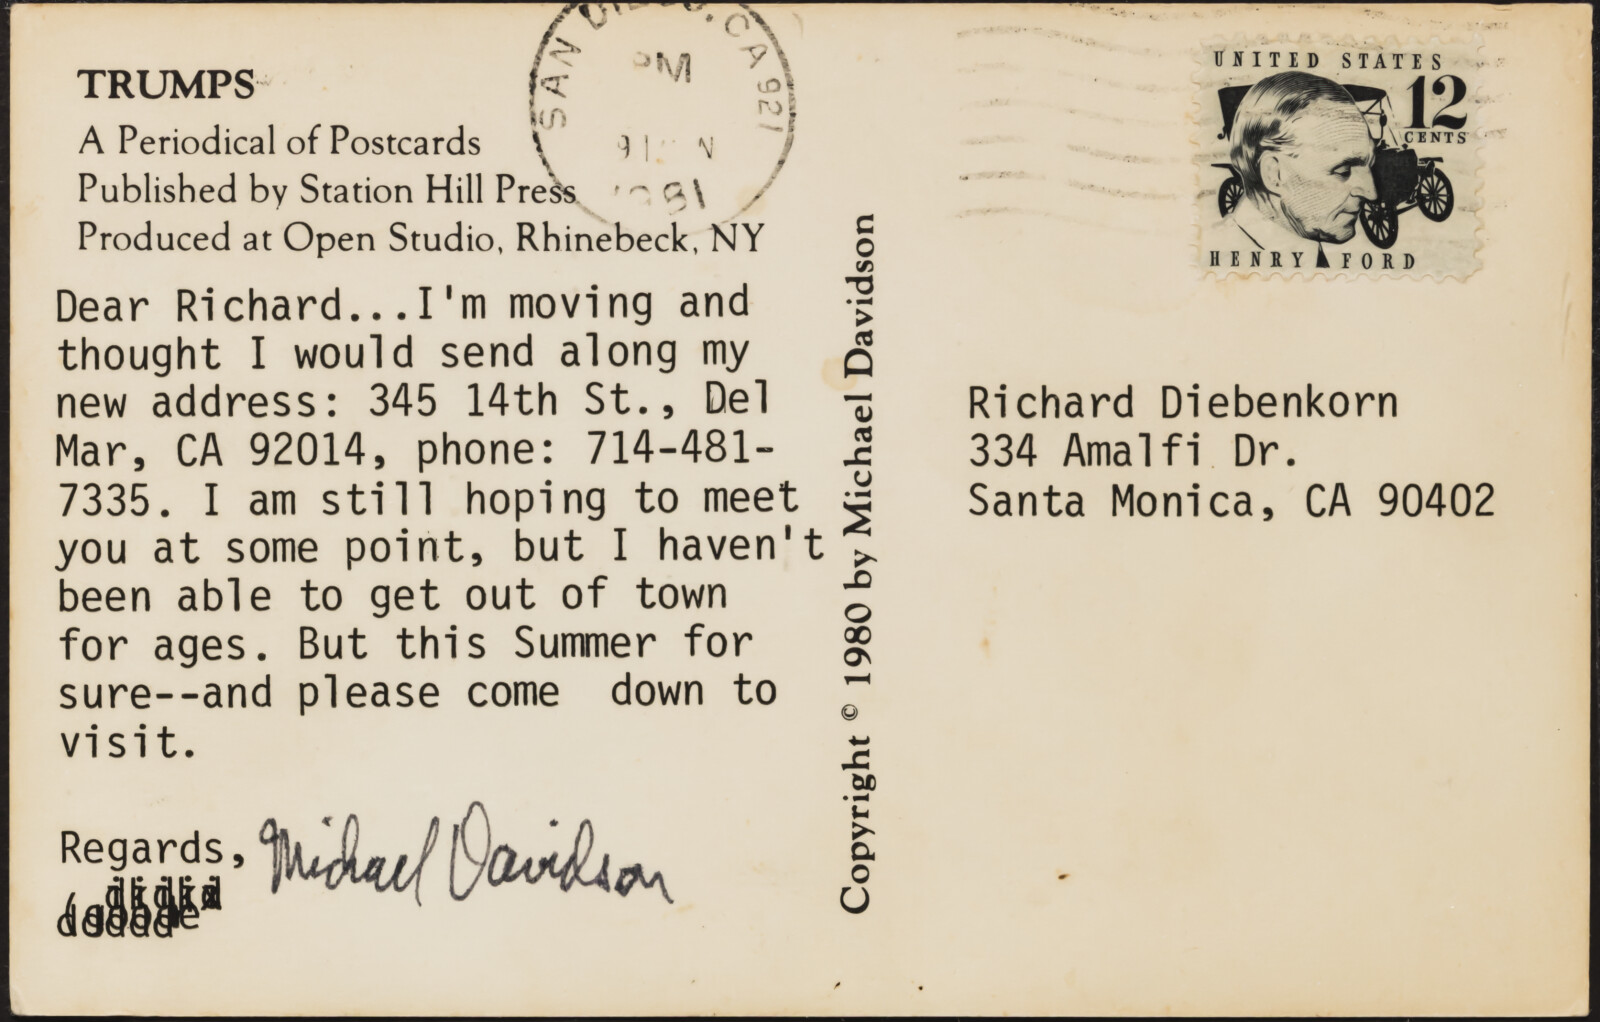 TRUMPS
A Periodical of Postcards
Published by Station Hill Press
Produced at Open Studio, Rhinebeck, NY
SAN CA 921
PM
1981
Dear Richard...I'm moving and
thought I would send along my
new address: 345 14th St., Del
Mar, CA 92014, phone: 714-481-
7335. I am still hoping to meet
you at some point, but I haven't
been able to get out of town
for ages. But this Summer for
sure--and please come down to
visit.
Regards, Michael Davidson
Copyright © 1980 by Michael Davidson
UNITED STATES
12
CENTS
HENRY FORD
Richard Diebenkorn
334 Amalfi Dr.
Santa Monica, CA 90402